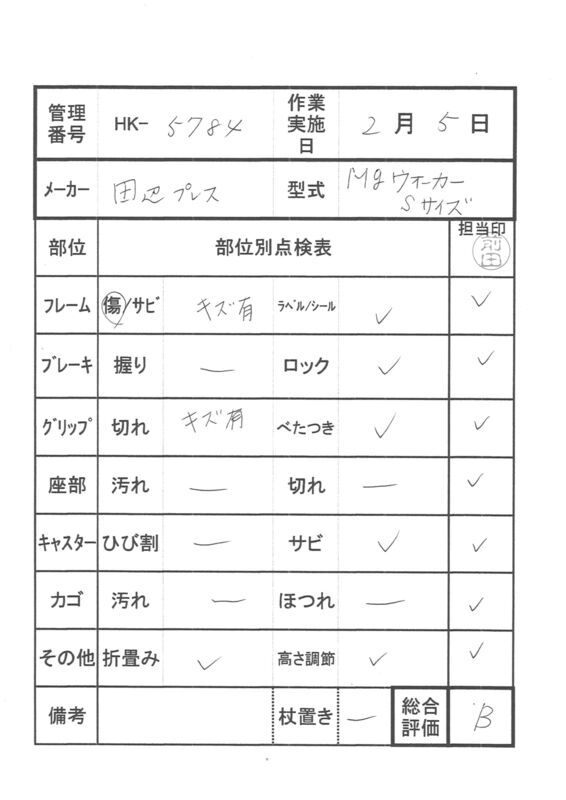 管理番号 HK- 5784 作業実施日 2月5日
メーカー 田辺プレス 型式 Mgウォーカー Sサイズ
部位 部位別点検表 担当印 前田
フレーム 傷/サビ キズ有 ラベル/シール ✓ ✓
ブレーキ 握り — ロック ✓ ✓
グリップ 切れ キズ有 べたつき ✓ ✓
座部 汚れ — 切れ — ✓
キャスター ひび割 — サビ ✓ ✓
カゴ 汚れ — ほつれ — ✓
その他 折畳み ✓ 高さ調節 ✓ ✓
備考 杖置き — 総合評価 B